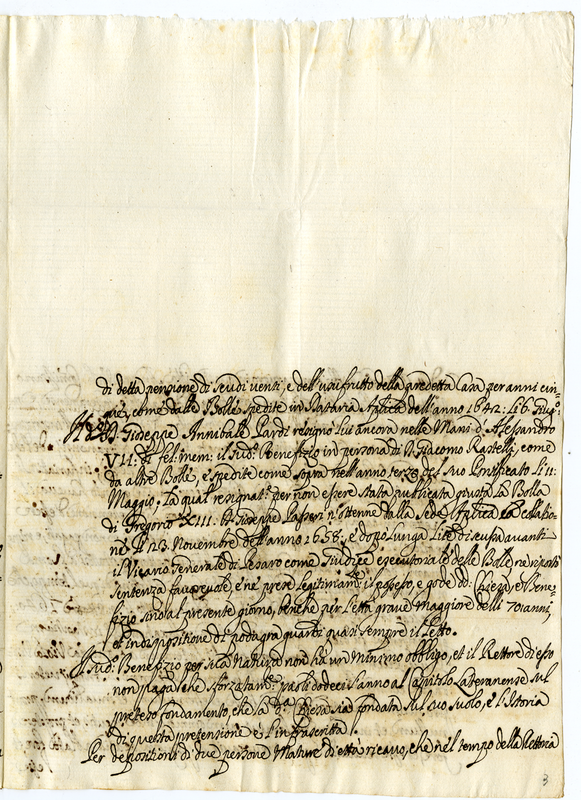 di detta pensione di scudi venti, e dell'usufrutto della predetta Casa per anni cin=
que, come dalle Bolle spedite in Dataria Aplica dell'anno 1642: li 6. Giug:
Giuseppe Annibale Pardi resignò lui ancora nelle Mani d'Alessandro
VII: di fel: mem: il sud: Benefizio in persona di Giacomo Rastelli, come
da altre Bolle, e spedite come sopra nell'anno terzo del suo Pontificato li 11:
Maggio; La qual resignat.e per non essere stata publicata giusta la Bolla
di Gregorio XIII. Giuseppe Passeri n'ottenne dalla Sede Aplica la collatio=
ne li 23. Novembre dell'anno 1658; e dopo lunga Lite di eussa avanti
il Vicario Generale di Pesaro come Giudice essecutoriale delle Bolle ne riportò
sentenza favorevole, e ne prese legitimam.e il possesso, e gode d: Chiesa, e Bene=
fizio sino al presente giorno, benche per l'età grave Maggiore delli 70 anni,
et indispositione di podagra guardi quasi sempre il Letto.
Il sud: Benefizio per sua Natura non ha un minimo obbligo, et il Rettore di esso
non paga che sforzatam.e paoli dodeci l'anno al Capitolo Lateranense sul
preteso fondamento, che la d.a Chiesa sia fondata sul suo suolo, e l'Istoria
di questa pretensione è l'infrascritta.
Per depositioni di due persone Mature d'età ricavo, che nel tempo della Rettoria
3